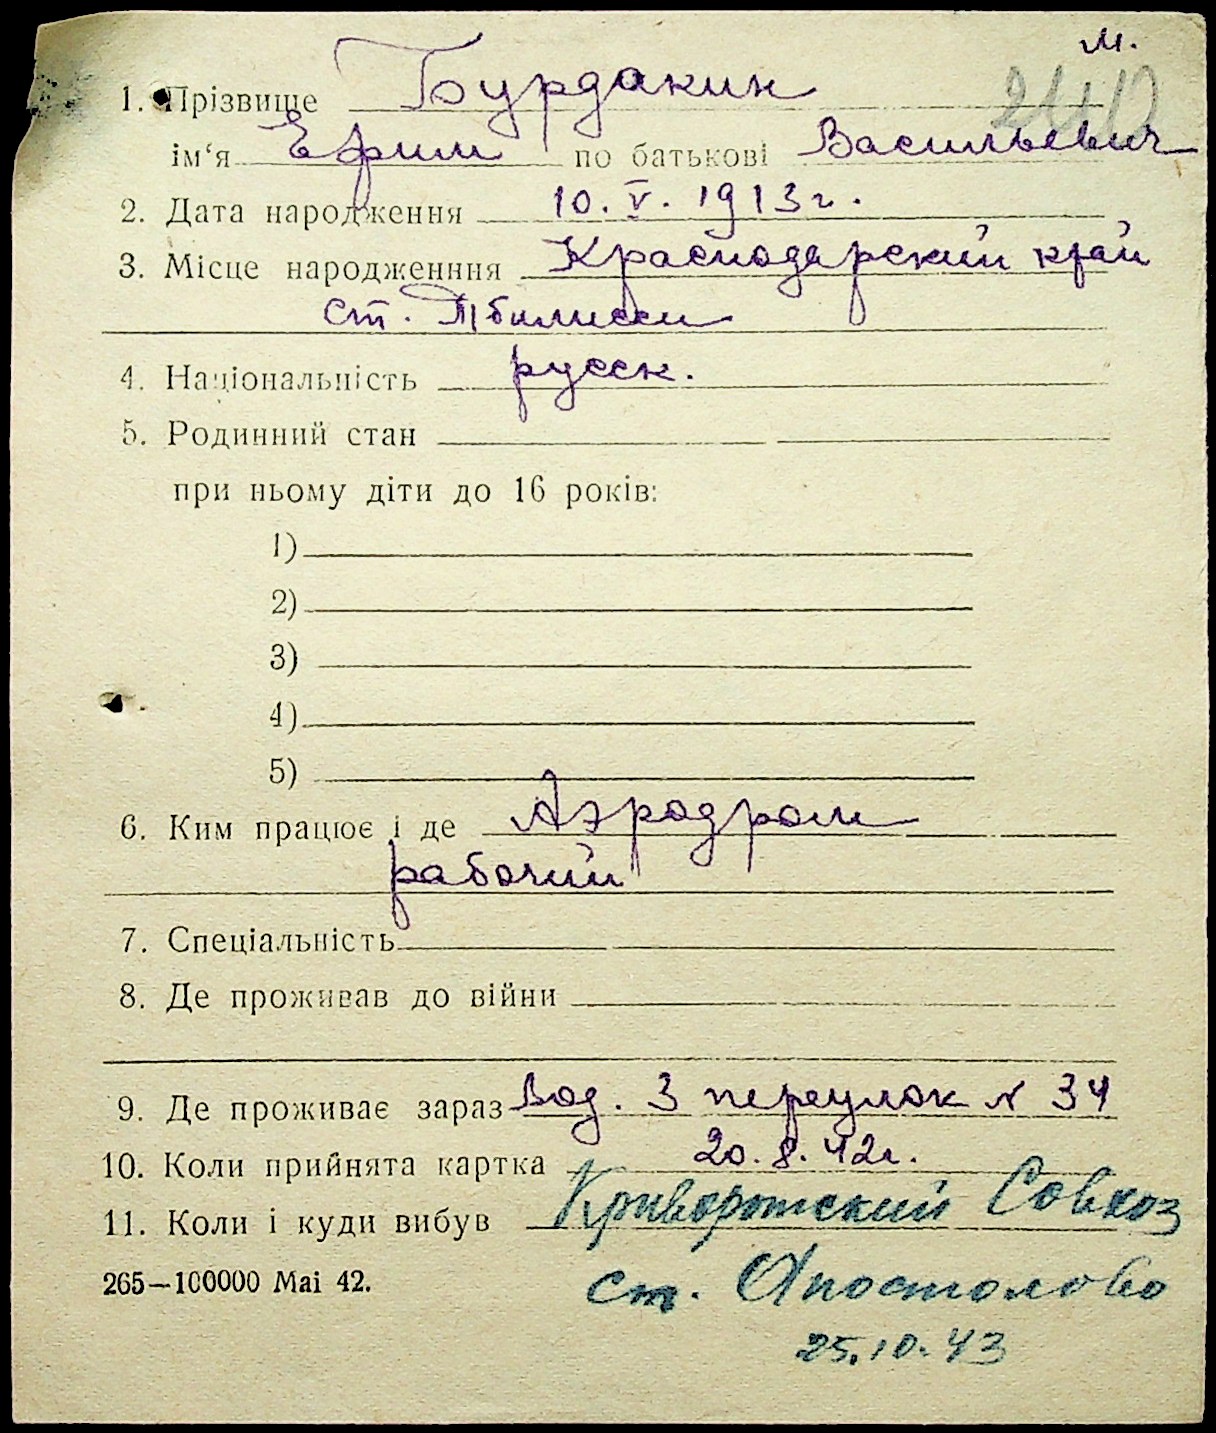 м.
1. Прізвище Бурдакин
ім‘я Ефим по батькові Васильевич
2. Дата народження 10. V. 1913 г.
3. Місце народженння Краснодарский край
ст. Тбилисси
4. Національність русск.
5. Родинний стан
при ньому діти до 16 років:
1)
2)
3)
4)
5)
6. Ким працює і де Аэродром
рабочий
7. Спеціальність
8. Де проживав до війни
9. Де проживає зараз Вод. 3 переулок № 34
10. Коли прийнята картка 20. 8. 42г.
11. Коли і куди вибув Криворожский Совхоз
265—100000 Mai 42. ст. Апостолово
25.10.43